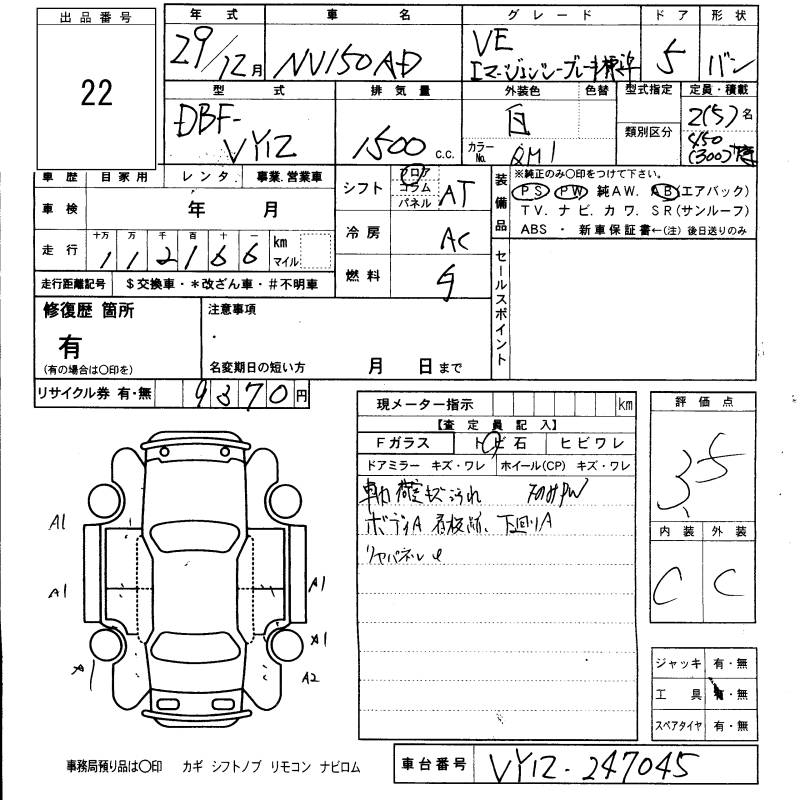 出品番号
22
年式
29/12月
車名
NV150AD
グレード
VE
エマージェンシーブレーキ標準
ドア
5
形状
バン
型式
DBF-
VY12
排気量
1500 c.c.
外装色
白
色替
カラーNo.
QM1
型式指定
類別区分
定員・積載
2(5)名
450
(300)
車歴 自家用 レンタ 事業.営業車
車検 年 月
走行
十万 万 千 百 十 一
112166
km
マイル
走行距離記号 $交換車・*改ざん車・#不明車
シフト
フロア
コラム
パネル
AT
冷房
AC
燃料
ガ
装備品
※純正のみ〇印をつけて下さい。
PS PW 純AW. AB(エアバック)
TV. ナビ. カワ. SR(サンルーフ)
ABS ・ 新車保証書←(注) 後日送りのみ
セールスポイント
修復歴 箇所
有
(有の場合は〇印を)
注意事項
名変期日の短い方 月 日まで
リサイクル券 有・無
9370円
現メーター指示 km
【査定員記入】
Fガラス トビ石 ヒビワレ
ドアミラー キズ・ワレ ホイール(CP) キズ・ワレ
荷室キズ汚れ
ボディA 看板跡、下回りA
リヤパネルU
評価点
3.5
内装 外装
C C
A1
A1
A1
A1
A1
A2
ジャッキ 有・無
工具 有・無
スペアタイヤ 有・無
事務局預り品は〇印 カギ シフトノブ リモコン ナビロム
車台番号
VY12-247045